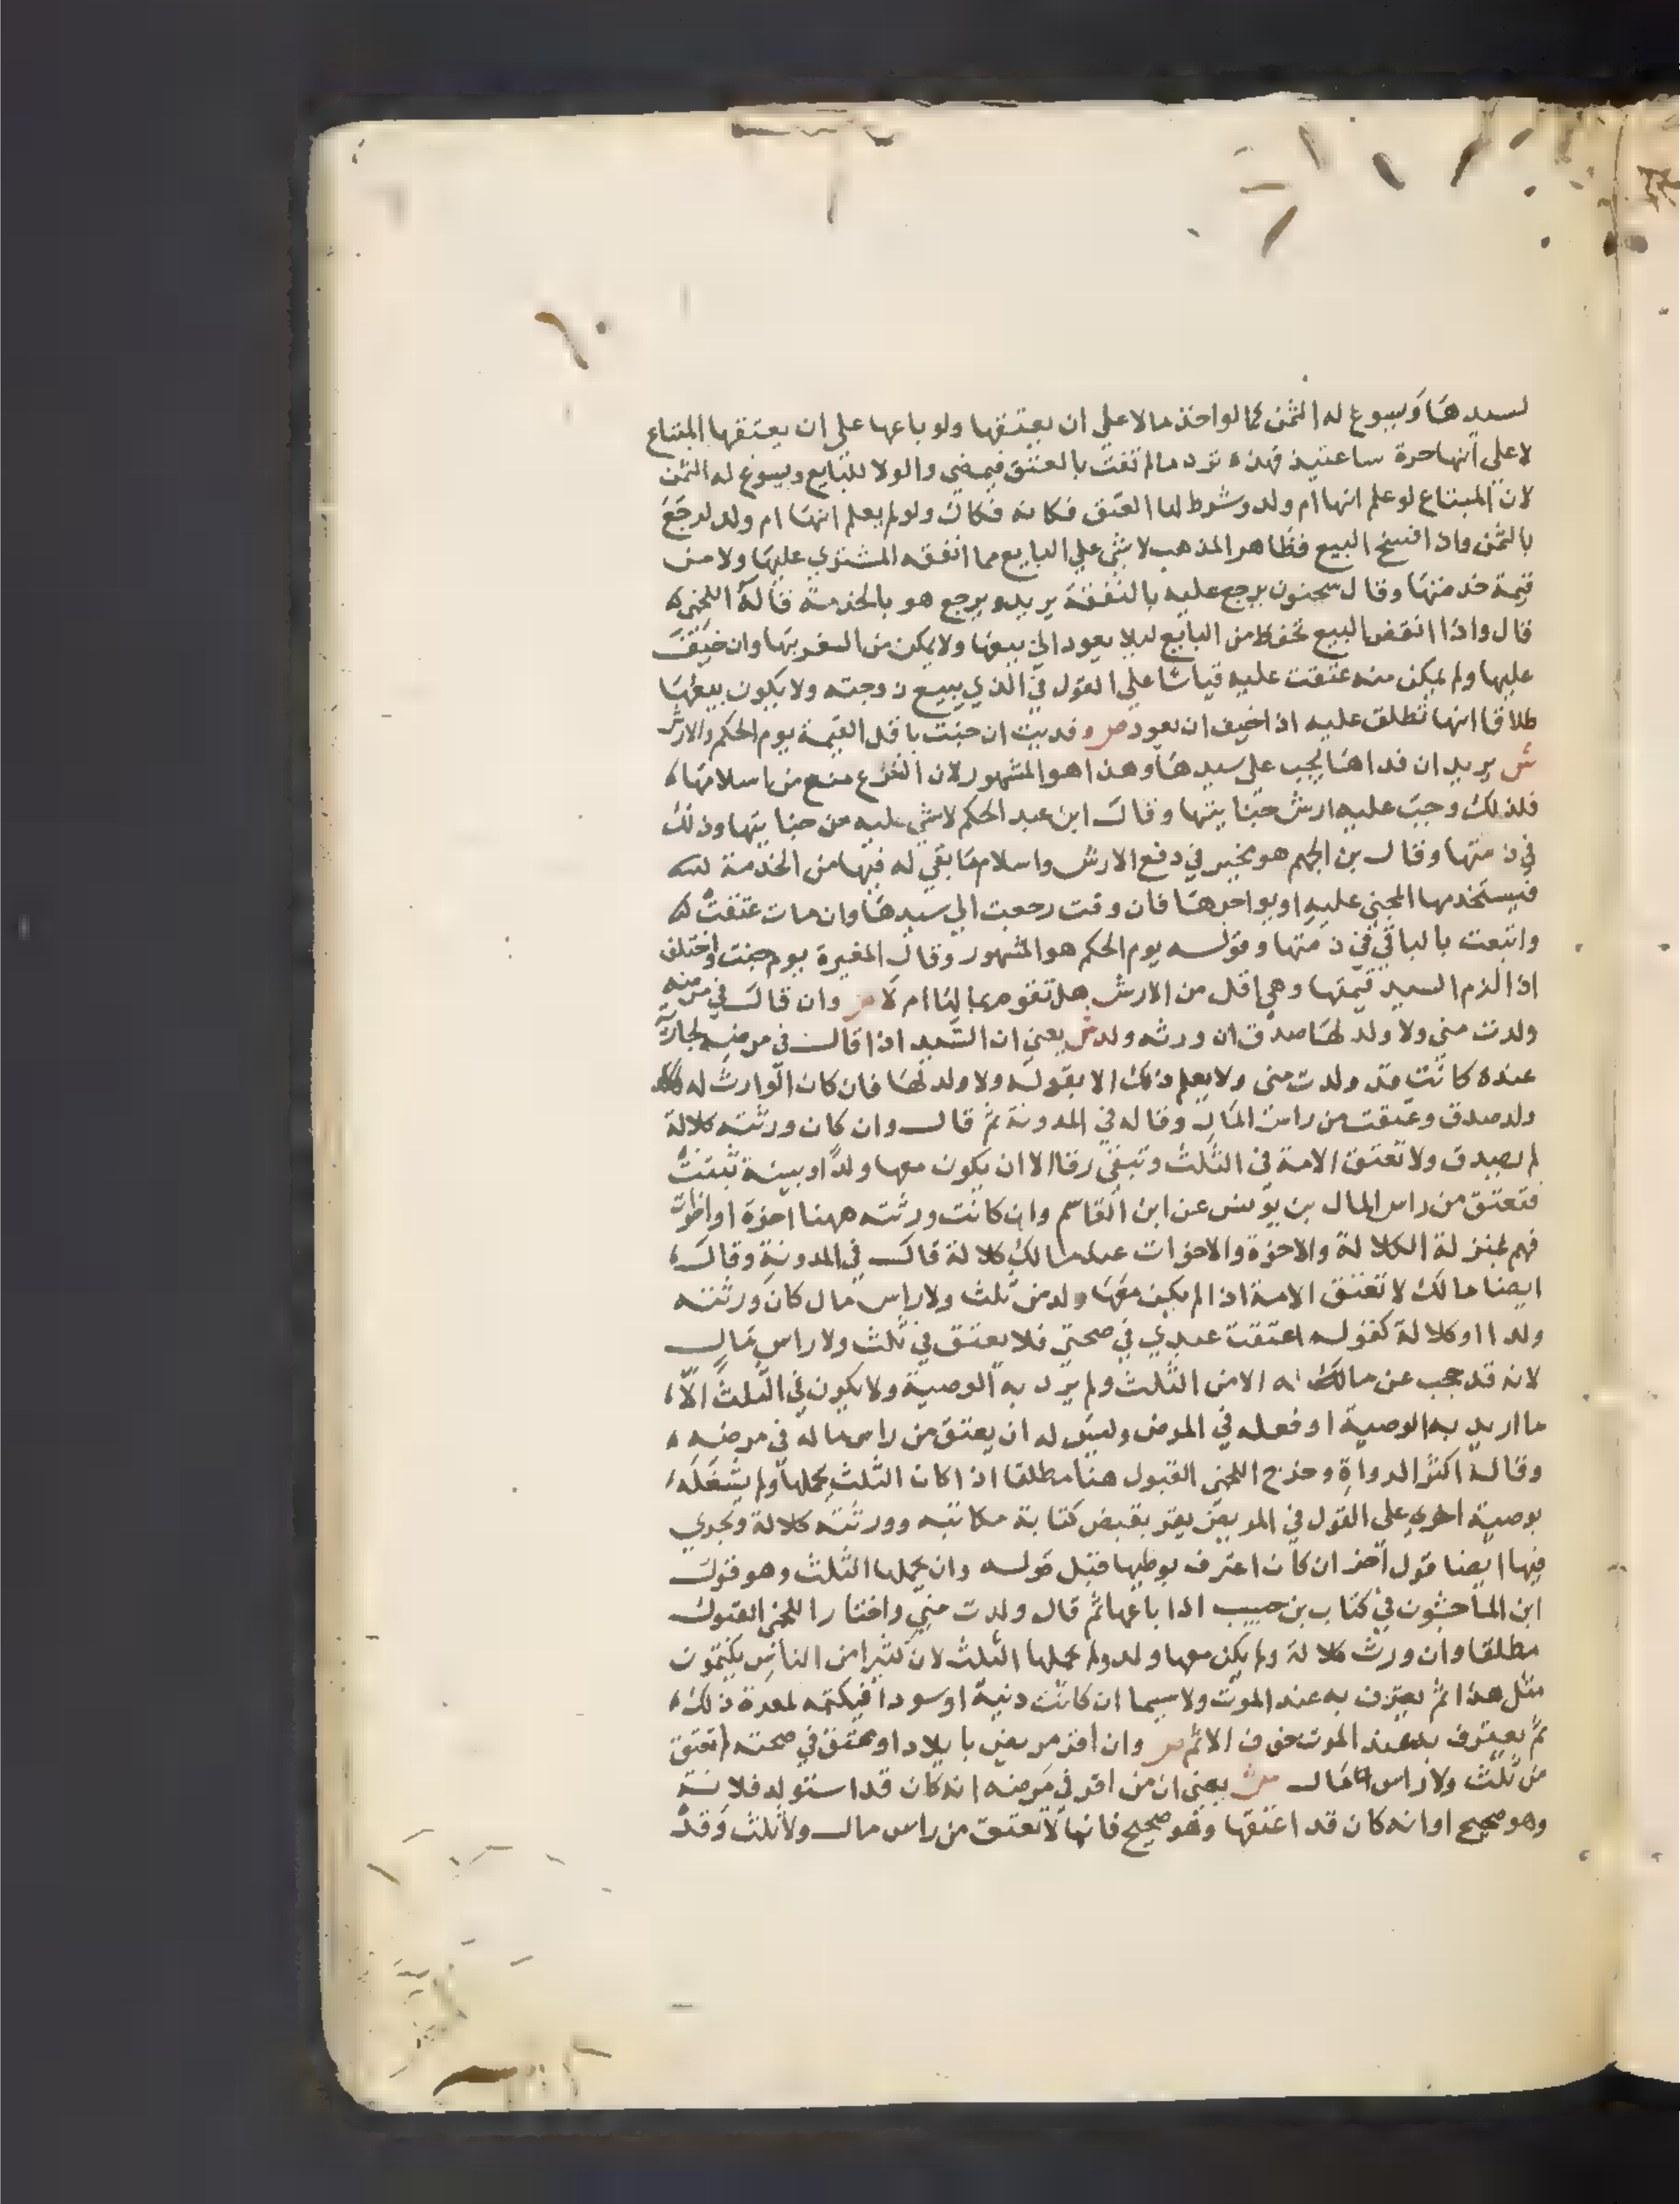 لسيدها ويسوغ له الثمن كما لو اخذ مالا على ان يعتقها ولو باعها على ان يعتقها المبتاع
لا على انها حرة ساعتيذ فهذه ترد ما لم تفت بالعتق فيمضي والولا للبايع ويسوغ له الثمن
لان المبتاع لو علم انها ام ولد وشرط لها العتق فكانه فكاك ولو لم يعلم انها ام ولد لرجع
بالثمن واذا فسخ البيع فظاهر المذهب لا شي على البايع مما انفقه المشتري عليها ولا من
قيمة خدمتها وقال سحنون يرجع عليه بالنفقة يريد ويرجع هو بالخدمة قاله اللخمي
قال واذا انقض البيع تحفظ من البايع ليلا يعود الى بيعها ولا يمكن من السفر بها وان خيف
عليها ولم يمكن منه عتقت عليه قياسا على القول في الذي يبيع زوجته ولا يكون بيعها
طلاقا انها تطلق عليه اذا خيف ان يعود ص وفديت ان جنت باقل القيمة يوم الحكم والارش
ش يريد ان فداها يجب على سيدها وهذا هو المشهور لان الشرع منع من اسلامها
فلذلك وجب عليه ارش جنايتها وقال ابن عبد الحكم لا شي عليه من جنايتها وذلك
في ذمتها وقال بن الجهم هو مخير في دفع الارش واسلام ما بقي له فيها من الخدمة
فيستخدمها المجني عليه او يواجرها فان وفت رجعت الى سيدها وان مات عتقت
واتبعت بالباقي في ذمتها وقوله يوم الحكم هو المشهور وقال المغيرة يوم جنت واختلف
اذا الزم السيد قيمتها وهي اقل من الارش هل تقوم بمالها ام لا ص وان قال في مرضه
ولدت مني ولا ولد لها صدق ان ورثه ولد ش يعني ان السيد اذا قال في مرضه لجارية
عنده كانت قد ولدت مني ولا يعلم ذلك الا بقوله ولا ولد لها فان كان الوارث له
ولد صدق وعتقت من راس المال وقاله في المدونة ثم قال وان كان ورثته كلالة
لم يصدق ولا تعتق الامة في الثلث وتبقى رقا الا ان يكون معها ولدا او بينة تثبت
فتعتق من راس المال بن يونس عن ابن القاسم وان كانت ورثته ههنا اخوة او اخوات
فهم بمنزلة الكلالة والاخوة والاخوات عند مالك كلالة قال في المدونة وقال
ايضا مالك لا تعتق الامة اذا لم يكن معها ولد من ثلث ولا راس مال كان ورثته
ولدا او كلالة كقوله اعتقت عبدي في صحتي فلا يعتق في ثلث ولا راس مال
لانه قد حجب عن ماله الا من الثلث ولم يرد به الوصية ولا يكون في الثلث الا
ما اريد به الوصية او فعله في المرض وليس له ان يعتق من راس ماله في مرضه
وقاله اكثر الرواة وخرج اللخمي القبول هنا مطلقا اذا كان الثلث يحملها ولم يشغله
بوصية اخرى على القول في المريض يقر بقبض كتابة مكاتبه وورثته كلالة ويجري
فيها ايضا قول اخر ان كان اعترف بوطيها قبل قوله وان يحملها الثلث وهو قول
ابن الماجشون في كتاب بن حبيب اذا باعها ثم قال ولدت مني واختار اللخمي القبول
مطلقا وان ورث كلالة ولم يكن معها ولد ولم يحملها الثلث لان كثيرا من الناس يكتمون
مثل هذا ثم يعترف به عند الموت ولا سيما ان كانت دنية او سودا فيكتمه لمعرة ذلك
ثم يعترف به عند الموت خوف الاثم ص وان اقر مريض بايلاد او بعتق في صحته لم تعتق
من ثلث ولا راس مال ش يعني ان من اقر في مرضه انه كان قد استولد فلانة
وهو صحيح او انه كان قد اعتقها وهو صحيح فانها لا تعتق من راس مال ولا ثلث وقد